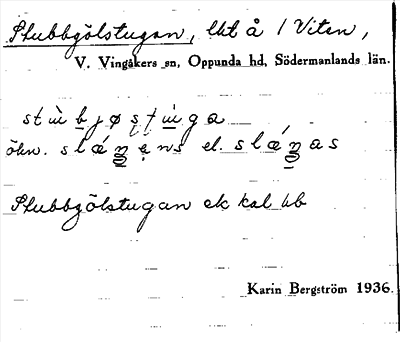 Stubbgölstugan, lht å 1 Viten,
V. Vingåkers sn, Oppunda hd, Södermanlands län.
stùbjøstùga
ökn. slǽŋens el. slǽŋas
Stubbgölstugan ek kal hb
Karin Bergström 1936.